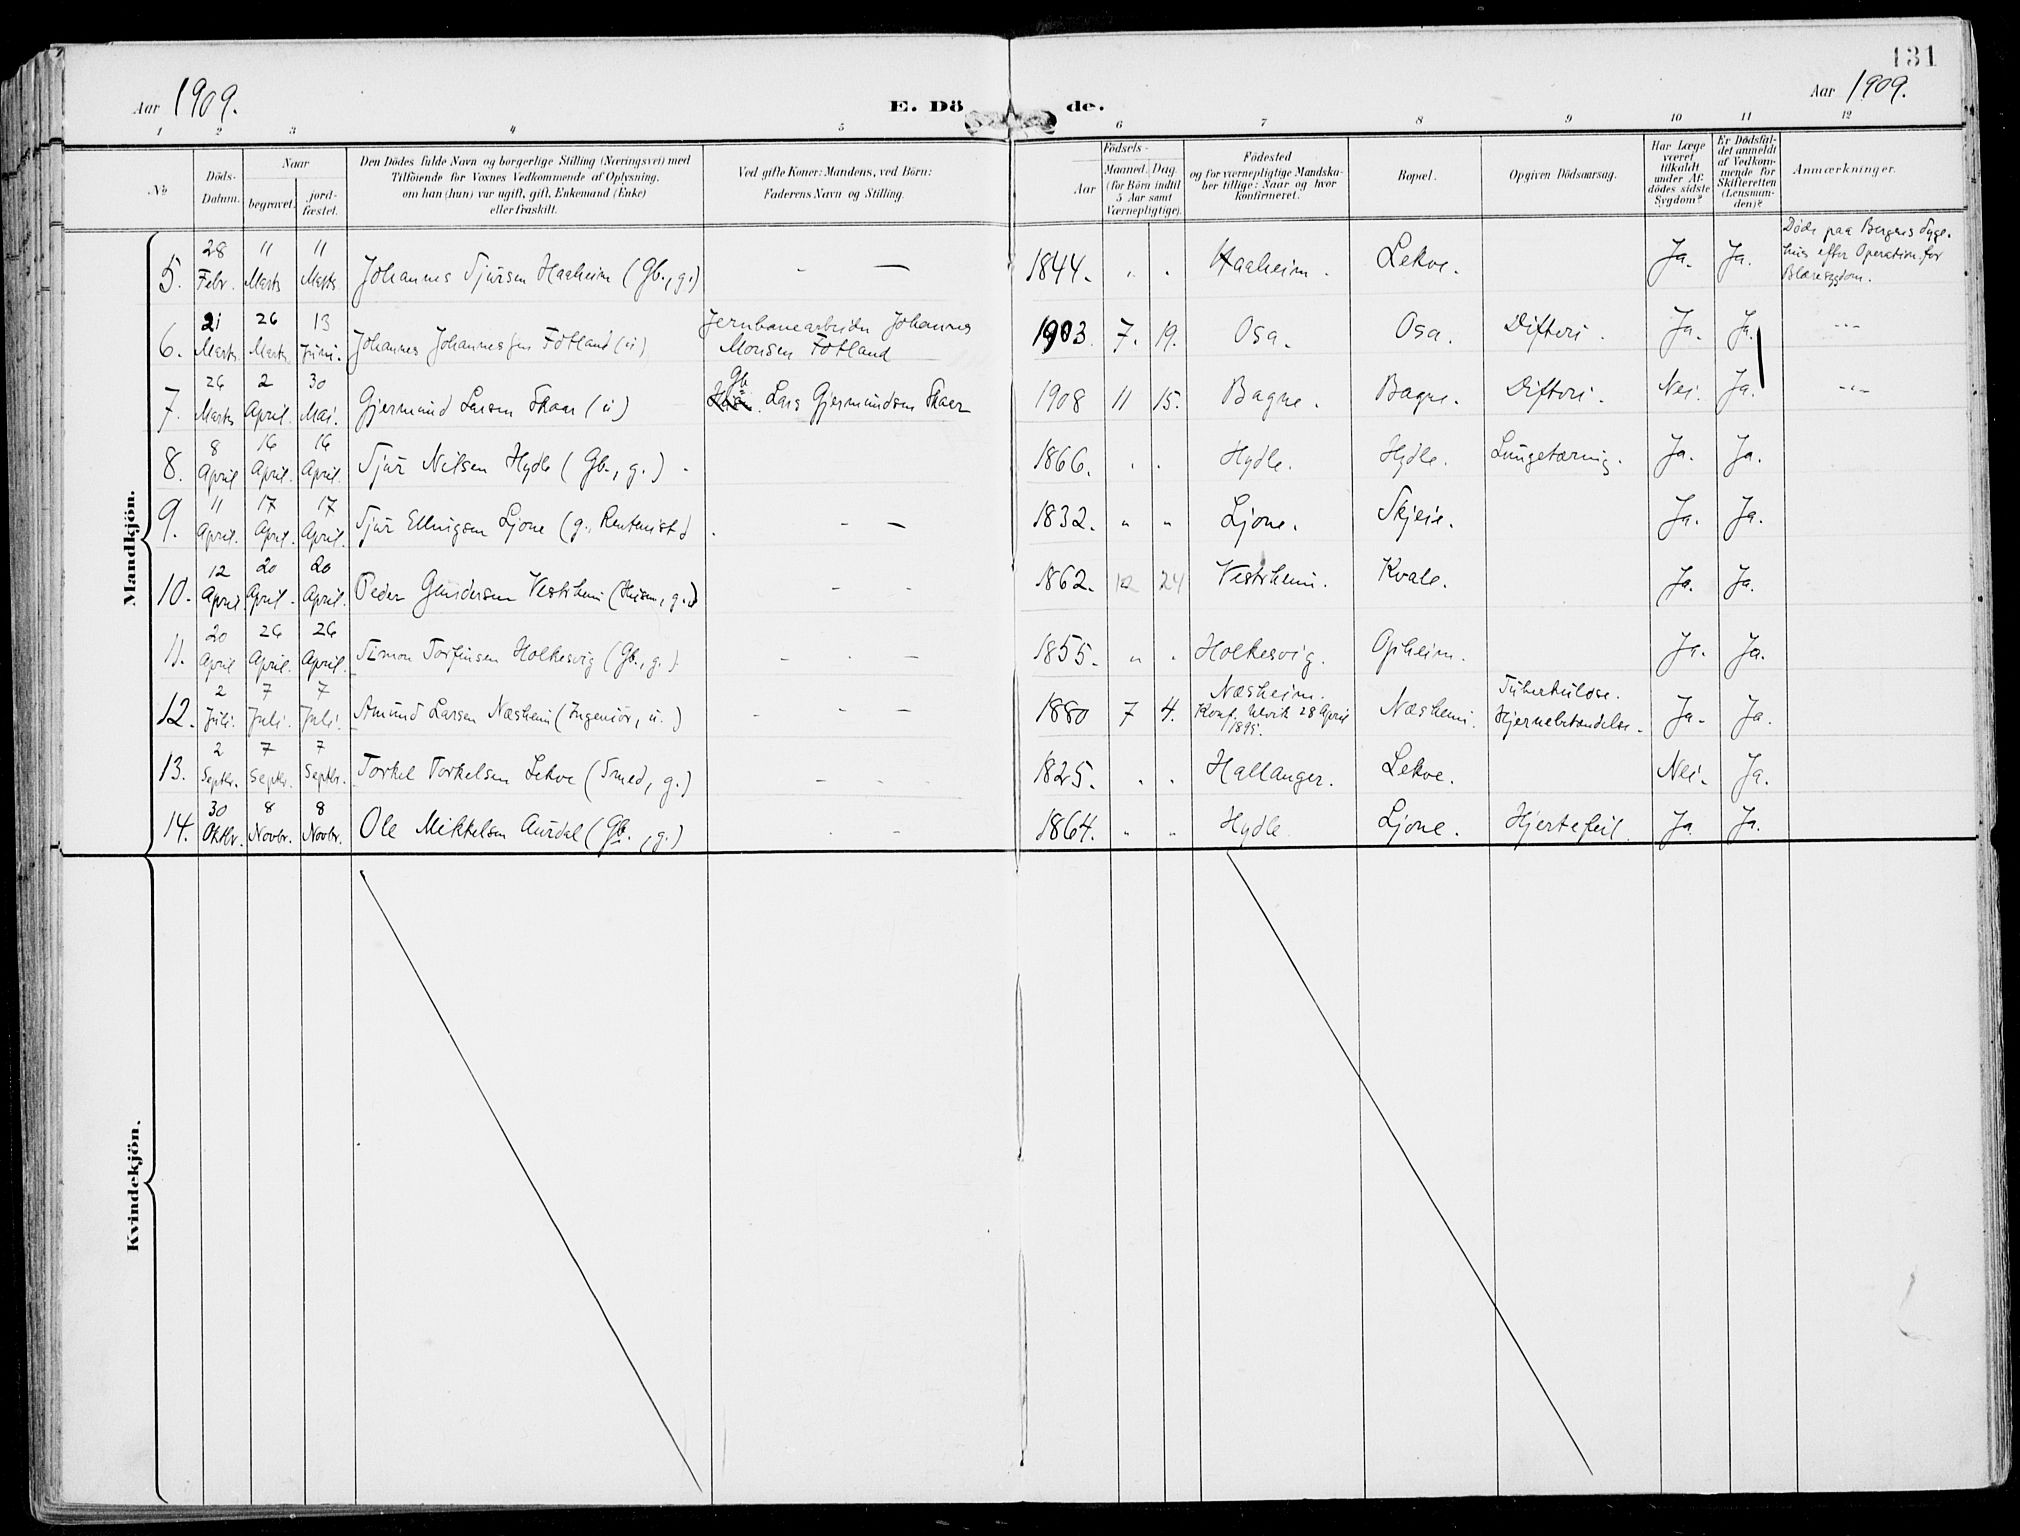 131
Aar 1909.
E. Dö de.
Aar 1909.
1 2 3 4 5 6 7 8 9 10 11 12
No
Döds-
Datum.
Naar
begravet.
jord-
fæstet.
Den Dödes fulde Navn og borgerlige Stilling (Næringsvei) med
Tilföiende for Voxnes Vedkommende af Oplysning,
om han (hun) var ugift, gift, Enkemand (Enke)
eller fraskilt.
Ved gifte Koner: Mandens, ved Börn:
Faderens Navn og Stilling.
Födsels-
Aar
Maaned. Dag.
(for Börn indtil
5 Aar samt
Værnepligtige).
Födested
og for værnepligtige Mandska-
ber tillige: Naar og hvor
konfirmeret.
Bopæl.
Opgiven Dödsaarsag.
Har Læge
været
tilkaldt
under Af-
dödes sidste
Sygdom?
Er Dödsfal-
det anmeldt
af Vedkom-
mende for
Skifteretten
(Lensman-
den)?
Anmærkninger.
Mandkjön.
5. 28 Febr. 11 Marts 11 Marts Johannes Sjursen Haaheim (Gb., g.) - — 1844. " " Haaheim. Lekve. Ja. Ja.
Døde paa Bergens Syge-
hus efter Operation for
Blæresygdom.
6. 21 Marts 26 Marts 13 Juni. Johannes Johannessen Fotland (u) Jernbanearbeider Johannes
Monsen Fotland 1903 7. 19. Osa. Osa. Difteri. Ja. Ja. -"-
7. 26 Marts 2 April. 30 Mai. Gjermund Larsen Skaar (u) Gb. Lars Gjermundsen Skaar 1908 11 15. Bagne. Bagne. Difteri. Nei. Ja. -"-
8. 8 April 16 April. 16 April. Sjur Nilsen Hydle (Gb., g.) - 1866. " " Hydle. Hydle. Lungetæring. Ja. Ja.
9. 11 April. 17 April. 17 April. Sjur Ellingsen Ljone (g., Rentenist) - — 1832. " " Ljone. Skjeie. Ja. Ja.
10. 12 April 20 April. 20 April. Peder Gundersen Vestrheim (Husm., g.) - - 1862. 12 24 Vestrheim. Kvale. Ja. Ja.
11. 20 April 26 April. 26 April. Simon Torfinsen Holkesvig (Gb., g.). - - - 1855. " " Holkesvig. Opheim. Ja. Ja.
12. 2 Juli. 7 Juli. 7 Juli. Amund Larsen Næsheim (Ingeniør, u.) - - - 1880 7 4. Næsheim.
Konf. Ulvik 28 April
1895. Næsheim. Tuberkuløse.
Hjernebetændelse. Ja. Ja.
13. 2 Septbr. 7 Septbr. 7 Septbr. Torkel Torkelsen Lekve (Smed, g.) - - 1825. " " Hallanger. Lekve. Nei. Ja.
14. 30 Oktbr. 8 Novbr. 8 Novbr. Ole Mikkelsen Aurdal (Gb., g.) - - 1864. " " Hydle. Ljone. Hjertefeil. Ja Ja.
Kvindekjön.